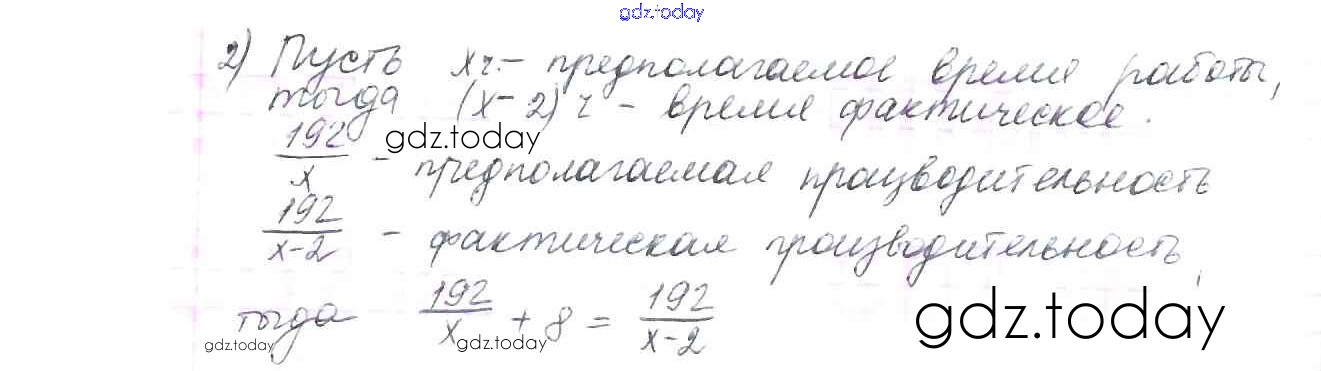 gdz.today
2) Пусть х ч. – предполагаемое время работы,
тогда (х – 2) ч – время фактическое.
192/х – предполагаемая производительность
gdz.today
192/х-2 – фактическая производительность,
тогда 192/х + 8 = 192/х-2
gdz.today
gdz.today
gdz.today